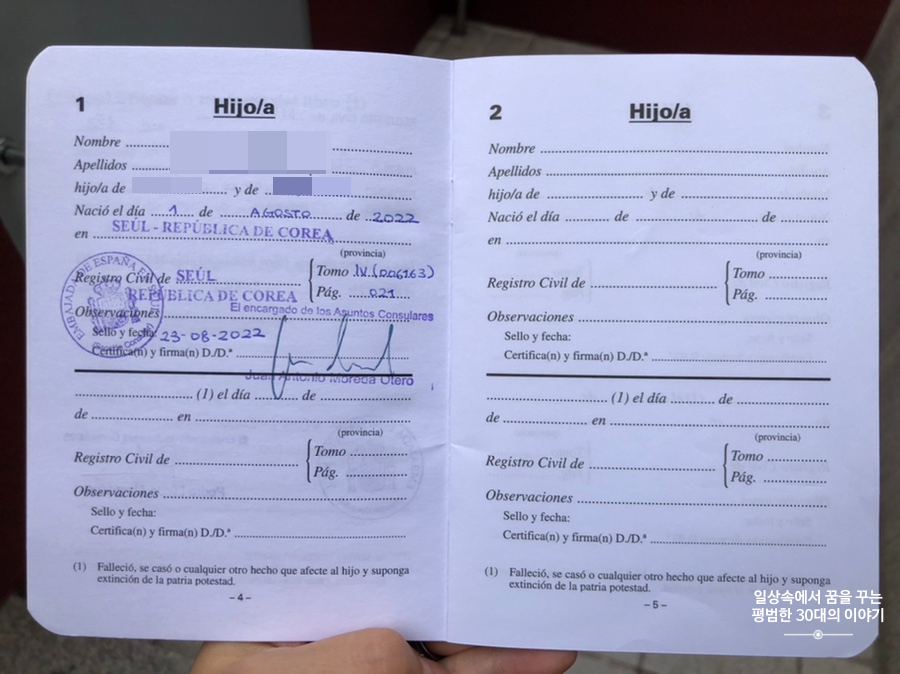 1 Hijo/a
Nombre
Apellidos
hijo/a de y de
Nació el día 1 de AGOSTO de 2022
en SEÚL - REPÚBLICA DE COREA
(provincia)
Registro Civil de SEÚL
REPÚBLICA DE COREA
Tomo IV.(006163)
Pág. 021
El encargado de los Asuntos Consulares
Observaciones
Sello y fecha: 23-08-2022
Certifica(n) y firma(n) D./D.ª
Juan Antonio Moreda Otero
EMBAJADA DE ESPAÑA
(1) el día de
de en
(provincia)
Registro Civil de
Tomo
Pág.
Observaciones
Sello y fecha:
Certifica(n) y firma(n) D./D.ª
(1) Falleció, se casó o cualquier otro hecho que afecte al hijo y suponga
extinción de la patria potestad.
– 4 –
2 Hijo/a
Nombre
Apellidos
hijo/a de y de
Nació el día de de
en
(provincia)
Registro Civil de
Tomo
Pág.
Observaciones
Sello y fecha:
Certifica(n) y firma(n) D./D.ª
(1) el día de
de en
(provincia)
Registro Civil de
Tomo
Pág.
Observaciones
Sello y fecha:
Certifica(n) y firma(n) D./D.ª
(1) Falleció, se casó o cualquier otro hecho que afecte al hijo y suponga
extinción de la patria potestad.
– 5 –
일상속에서 꿈을 꾸는
평범한 30대의 이야기